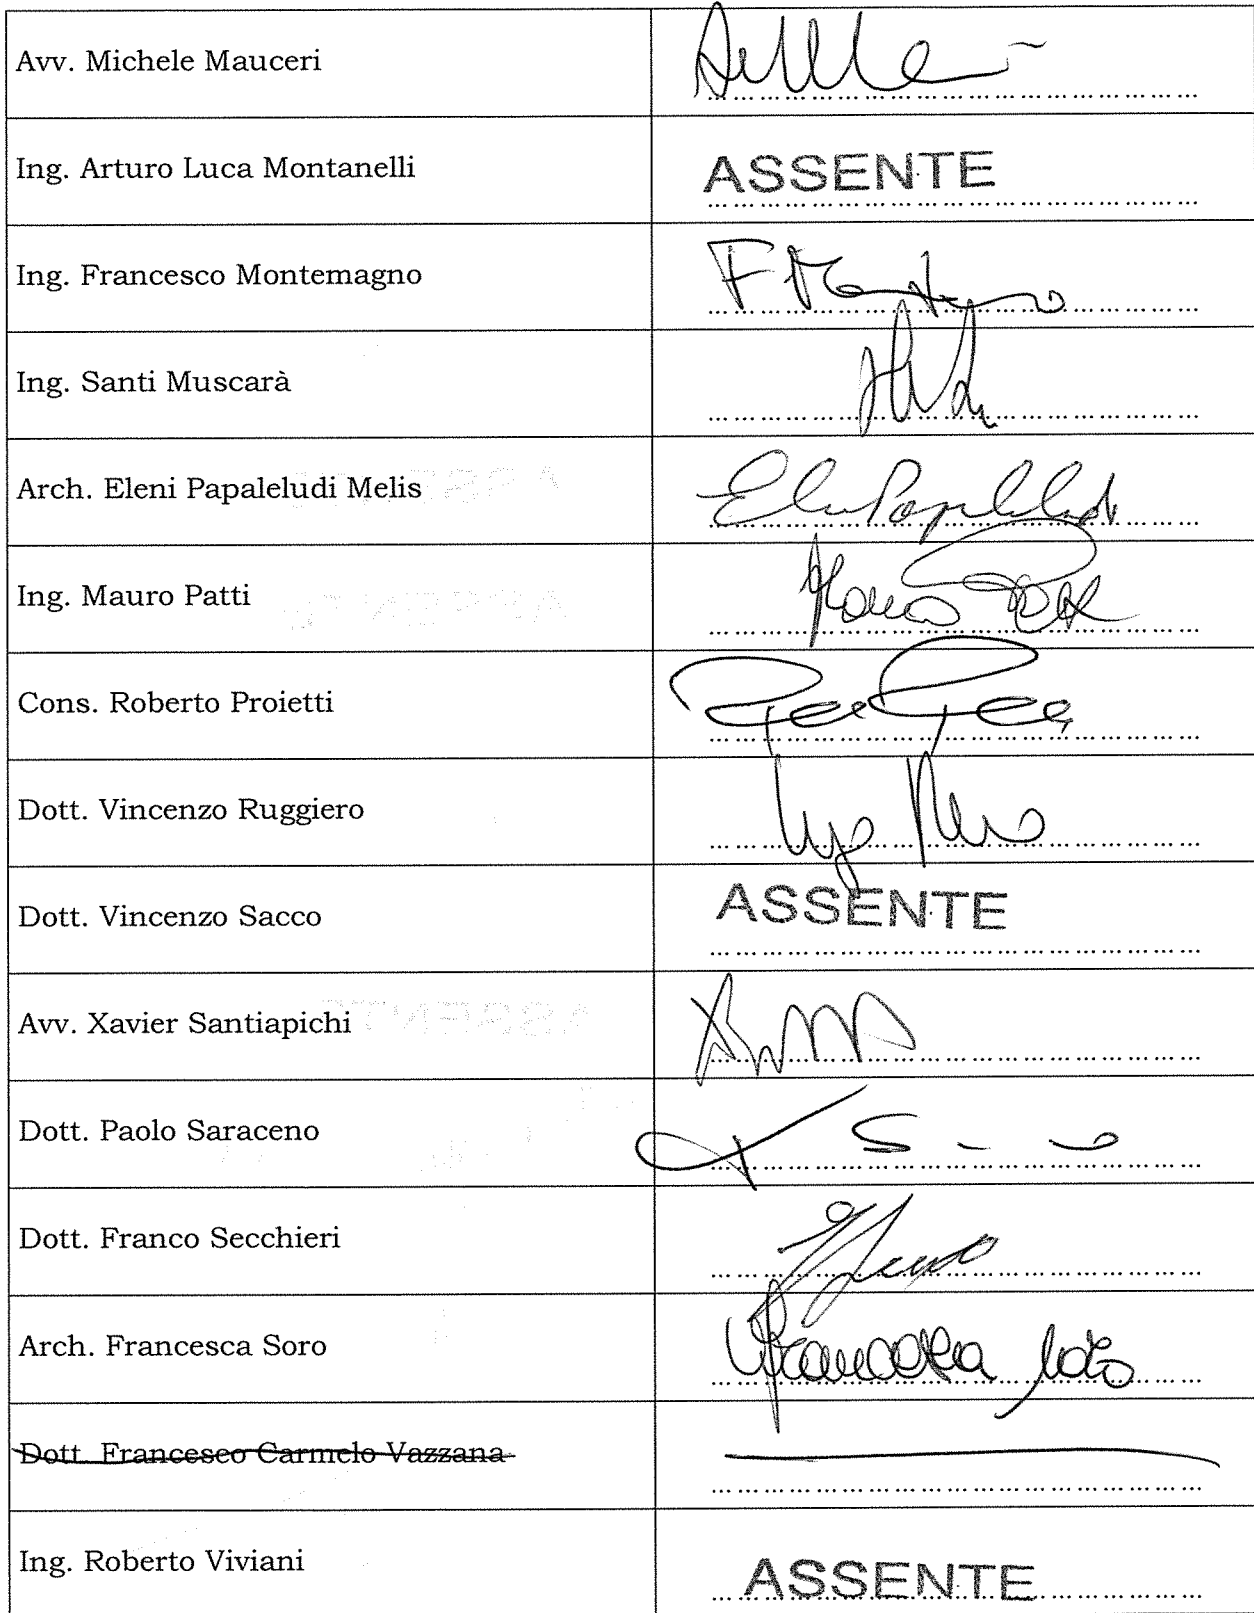 Avv. Michele Mauceri
Ing. Arturo Luca Montanelli
ASSENTE
Ing. Francesco Montemagno
Ing. Santi Muscarà
Arch. Eleni Papaleludi Melis
Ing. Mauro Patti
Cons. Roberto Proietti
Dott. Vincenzo Ruggiero
Dott. Vincenzo Sacco
ASSENTE
Avv. Xavier Santiapichi
Dott. Paolo Saraceno
Dott. Franco Secchieri
Arch. Francesca Soro
Dott. Francesco Carmelo Vazzana
Ing. Roberto Viviani
ASSENTE